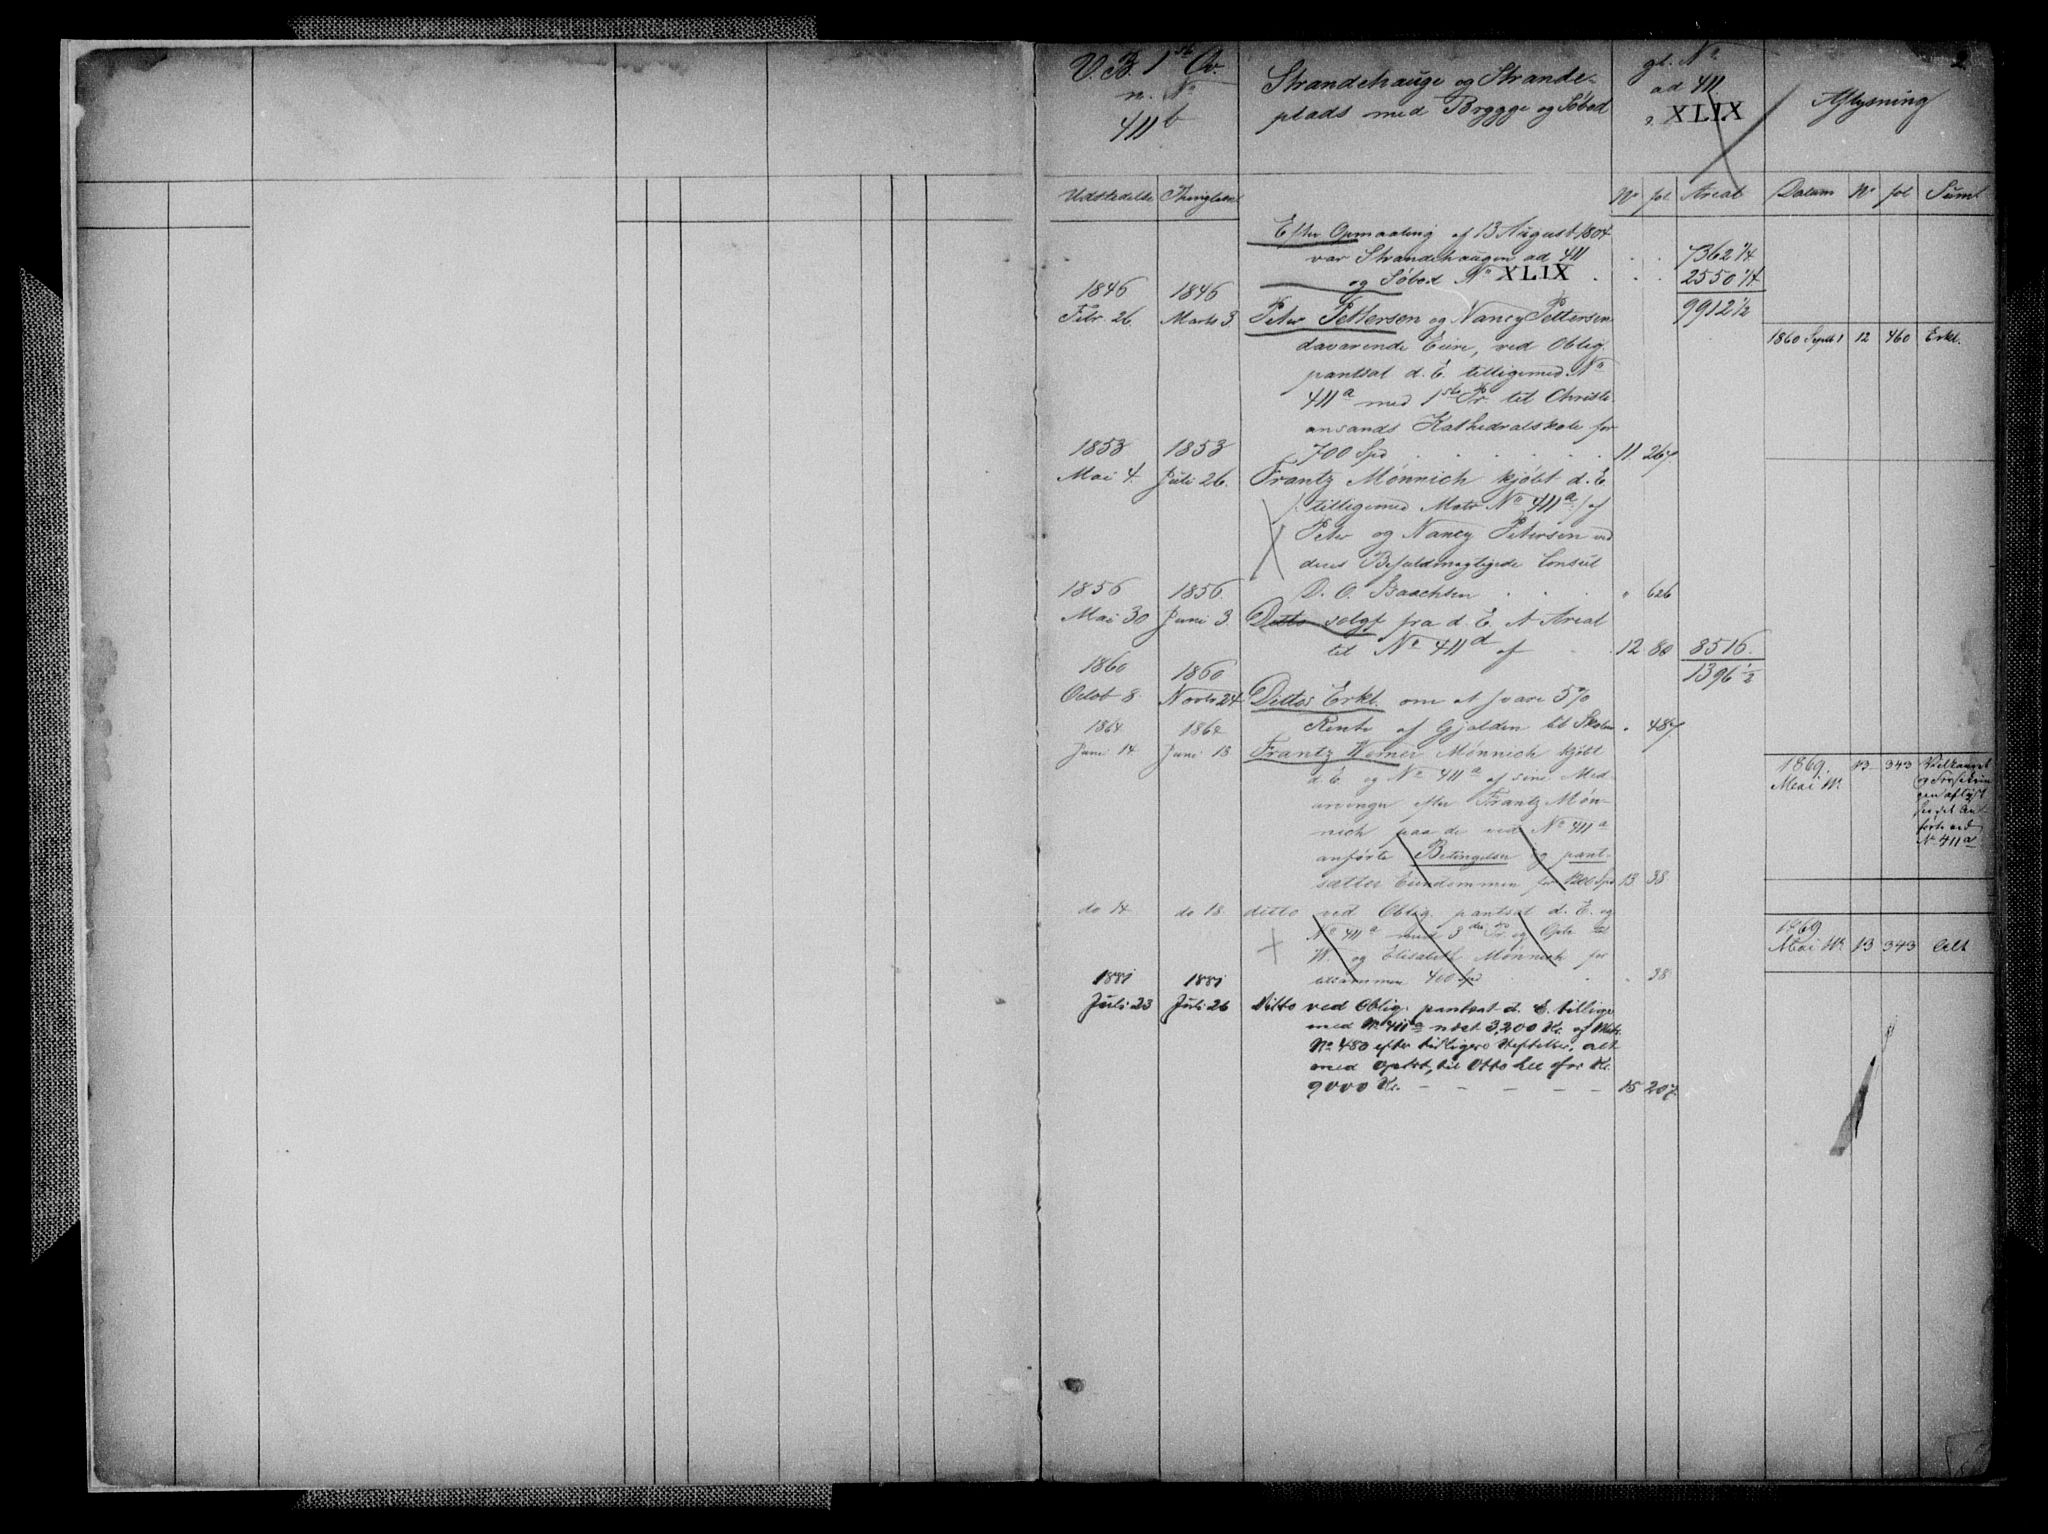 V. B. 1ste Qv.
n. No
411 b
Strandehauge og Strande-
plads med Brygge og Söbod
gl. No
ad 411
XLIX
Aflysning
2
Udstedelse Thinglæst No fol Areal Datum No fol Suml
Efter Opmaaling af 13 August 1804
var Strandehaugen ad 411 . . 7362 1/4
og Söbod No XLIX . . . 2550 1/4
9912 1/2
1846 1846
Febr. 26 Marts 3 Peter Pettersen og Nancy Pettersen
daværende Eiere, ved Oblig. 1860 Septb 1 12 460 Erkl.
pantsat d. E. tilligemed No
411 a med 1ste Pr. til Christi-
ansands Kathedralskole for
700 Spd . . . . . 11 267
1853 1853
Mai 4. Juli 26. Frantz Mönnich kjöbt d. E
/: tilligemed Matr No 411 a :/ af
Peter og Nancy Petersen ved
deres Befuldmægtigede Consul
D. O. Baachsen . . . " 626
1856 1856.
Mai 30 Juni 3. Ditto solgt fra d. E. et Areal
til No 411 d af . 12 80 8516.
1396 1/2
1860 1860
Octob 8. Novbr 24. Dittos Erkl. om at svare 5%
Rente af Gjælden til Skolen " 487
1864 1864
Juni 14 Juni 18 Frantz Werner Mönnich kjöbt
d. E. og No 411 a af sine Med-
arvinger efter Frantz Mön-
nich paa de ved No 411 a
anförte Betingelser og pant-
sætter Eiendommen for 1200 Spd 13 38
1869.
Mai 13 343 Vilkaaret
og
aflyst
an-
fört ved
No 411 a
do 14 do 18 ditto ved Oblig. pantsat d. E. og
No 411 a med 3die Pr. og Opr til
W. og Elisabeth Mönnich for
tilsammen 400 Spd . . . " 38
1869
Mai 13 343 Alt
1881 1881
Juli 23 Juli 26 Ditto ved Oblig. pantsat d. E. tillige-
med No 411 a næst 3,200 Kr. og Matr.
No 480 efter tidligere Heftelser, alt
med Oprt, til Otto Lee for Kr.
9000 Kr. – – – – – 15 207.